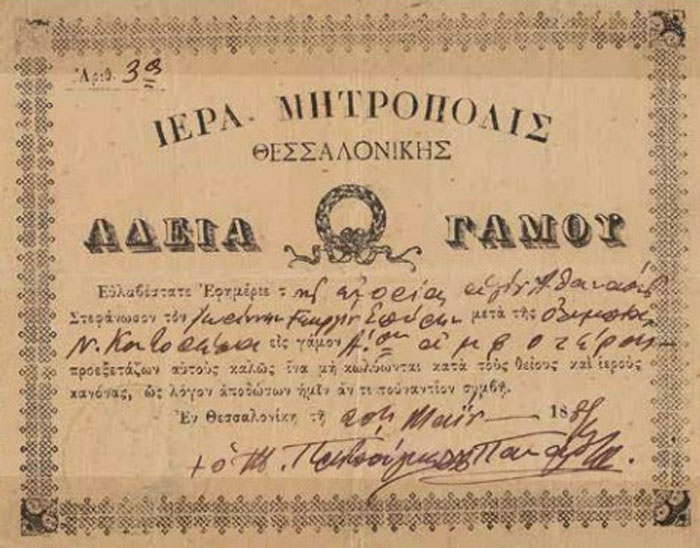 Ἀριθ. 39
ΙΕΡΑ. ΜΗΤΡΟΠΟΛΙΣ
ΘΕΣΣΑΛΟΝΙΚΗΣ
ΑΔΕΙΑ ΓΑΜΟΥ
Εὐλαβέστατε Ἐφημέριε τῆς ἐνορίας ἁγίου Ἀθανασίου
Στεφάνωσον τὸν Ἰωάννην Γεωργίου μετὰ τῆς
Ν. εἰς γάμον Αον ἀμφοτέρων
προεξετάζων αὐτοὺς καλῶς ἵνα μὴ κωλύωνται κατὰ τοὺς θείους καὶ ἱεροὺς
κανόνας, ὡς λόγον ἀποδώτων ἡμῖν ἄν τι τοὐναντίον συμβῇ.
Ἐν Θεσσαλονίκῃ τῇ 20ῃ Μαΐου 188